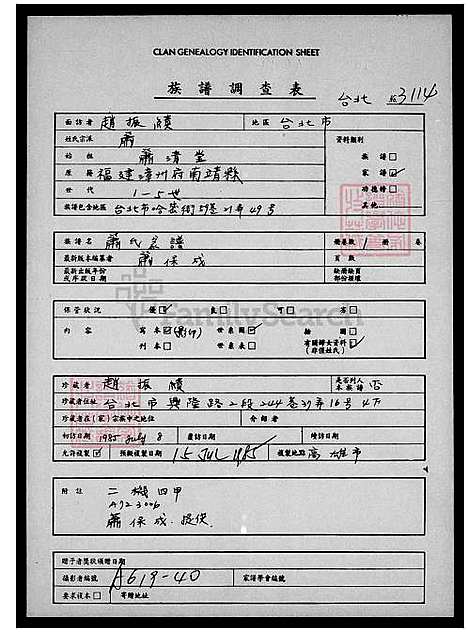 CLAN GENEALOGY IDENTIFICATION SHEET
族譜調查表
台北 № 3114
面訪者 趙振績 地區 台北市
姓氏宗派 蕭 資料類別
始祖 蕭清堂 族譜☐
原籍 福建漳州府南靖縣 家譜☑
世代 1-5世 功德譜☐
族譜包含地區 台北市 49号 其他
族譜名 蕭氏家譜 冊卷數 1 冊 卷
最新版本編纂者 蕭保成 頁數
最新出版年份或序跋日期 缺冊缺頁部份續壞
保管狀況 優☑ 良☐ 可☐ 劣☐
內容 寫本☑(影印) 世系圖☑ 繪圖☐
刊本☐ 世系表☐ 有關婦女資料☑(非僅姓氏)
FamilySearch
珍藏者 趙振績 是否列入本族譜 否
珍藏者住址 台北市興隆路2段244巷37弄16号4F
珍藏者在(家)宗族中之地位 介紹者
初訪日期 1985 July 8 重訪日期 續訪日期
允許複製☑ 預擬複製日期 15 JUL 1985 複製地點 高雄市
附註 二機四甲
A72-3006
蕭保成 提供
贈予者獎狀頒贈日期
攝影者編號 A619-40 家譜學會編號
要求複本☐ 寄贈地址